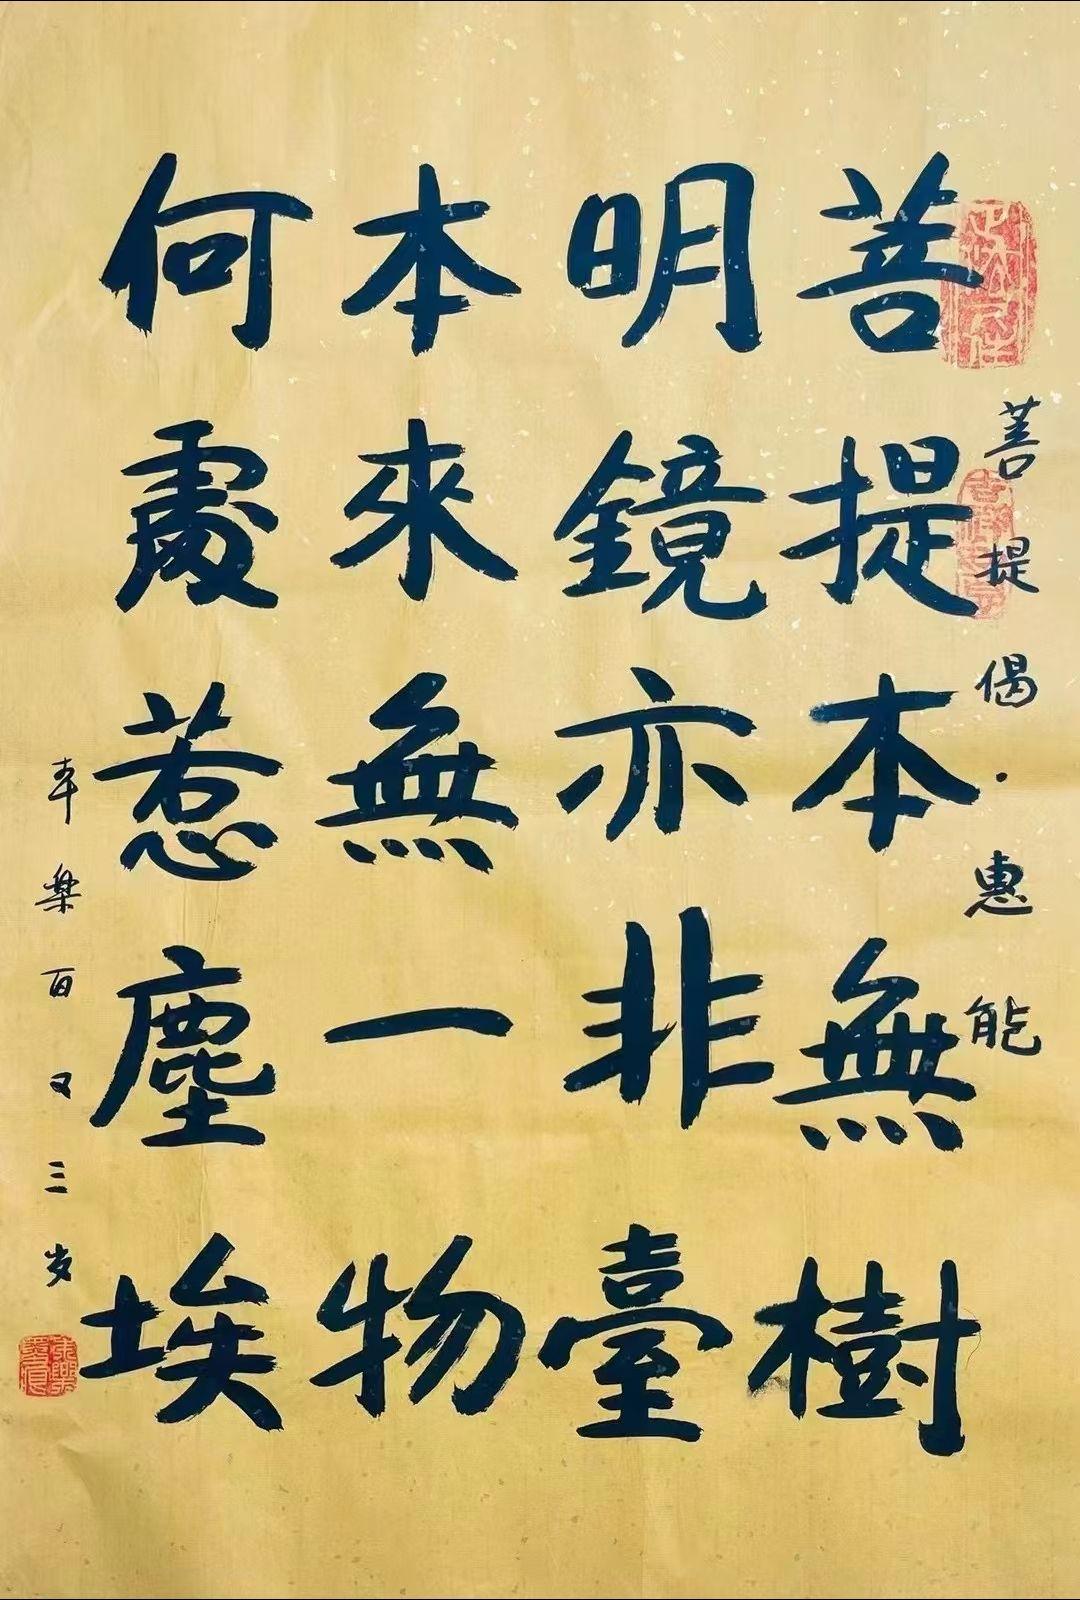 菩提偈·惠能
菩提本無樹
明鏡亦非臺
本來無一物
何處惹塵埃
樂百又三岁